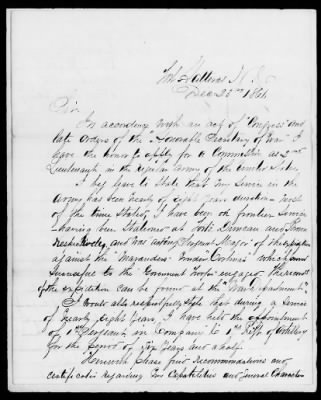 Fort Hatteras N. C.
Dec 25th 1861
Sir
In accordancy with an act of "Congress" and
late orders of the "Honorable Secretary of War" I
have the honor to apply for a Commission as 2nd
Lieutenant in the regular Army of the United States
I beg leave to State that my Service in the
Army has been nearly of Eight years duration most
of the time Stationed I have been on frontier Service
having been Stationed at Forts Duncan and Brown
respectively, and was acting Sergeant Major of the Expedition
against the "Marauders under Cortinas" which came
Successful to the Government Troops engaged. The result
of the expedition can be found at the "War Department."
I would also respectfully State that during a Service
of nearly Eight years, I have held the appointment
of 1st Sergeant in Company 1st Regt. of Artillery
for the period of five years and a half.
Herewith please find recommendations and
certificates regarding my Capabilities and general Character